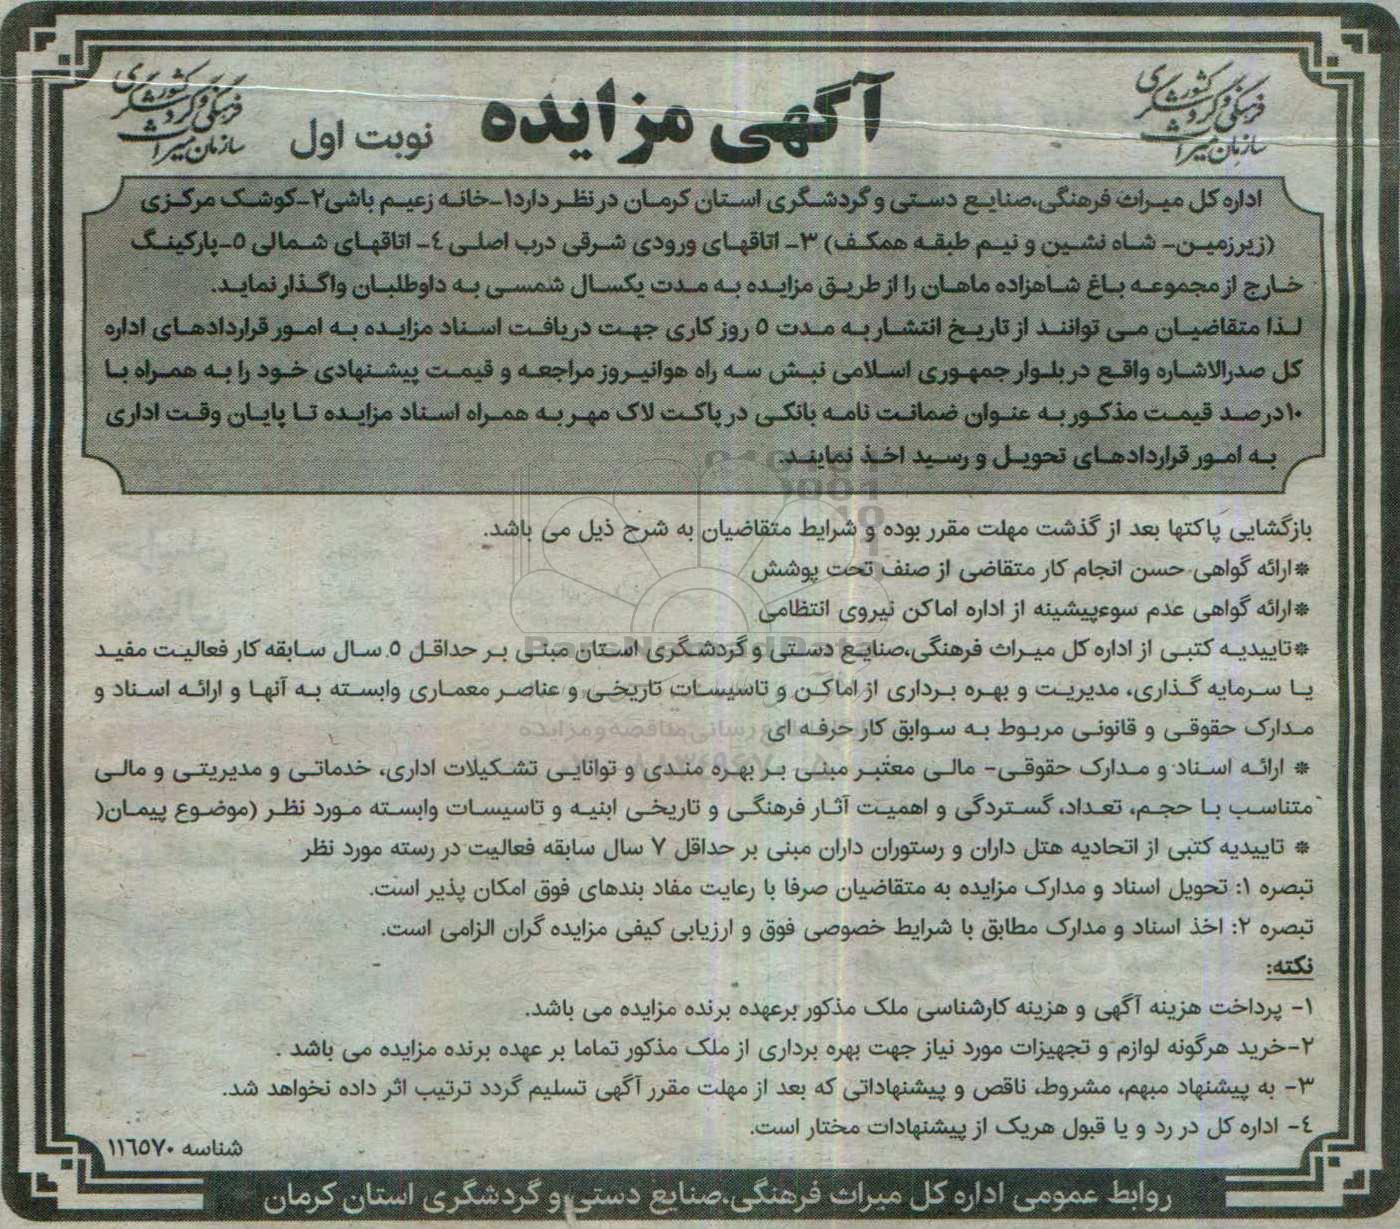 سازمان میراث فرهنگی و گردشگری کشور
آگهی مزایده
نوبت اول
سازمان میراث فرهنگی و گردشگری کشور
اداره کل میراث فرهنگی،صنایع دستی و گردشگری استان کرمان در نظر دارد۱-خانه زعیم باشی۲-کوشک مرکزی
(زیرزمین- شاه نشین و نیم طبقه همکف) ۳- اتاقهای ورودی شرقی درب اصلی ٤- اتاقهای شمالی ٥-پارکینگ
خارج از مجموعه باغ شاهزاده ماهان را از طریق مزایده به مدت یکسال شمسی به داوطلبان واگذار نماید.
لذا متقاضیان می توانند از تاریخ انتشار به مدت ٥ روز کاری جهت دریافت اسناد مزایده به امور قراردادهای اداره
کل صدرالاشاره واقع در بلوار جمهوری اسلامی نبش سه راه هوانیروز مراجعه و قیمت پیشنهادی خود را به همراه با
۱۰درصد قیمت مذکور به عنوان ضمانت نامه بانکی در پاکت لاک مهر به همراه اسناد مزایده تا پایان وقت اداری
به امور قراردادهای تحویل و رسید اخذ نمایند.
بازگشایی پاکتها بعد از گذشت مهلت مقرر بوده و شرایط متقاضیان به شرح ذیل می باشد.
*ارائه گواهی حسن انجام کار متقاضی از صنف تحت پوشش
*ارائه گواهی عدم سوءپیشینه از اداره اماکن نیروی انتظامی
*تاییدیه کتبی از اداره کل میراث فرهنگی،صنایع دستی و گردشگری استان مبنی بر حداقل ٥ سال سابقه کار فعالیت مفید
یا سرمایه گذاری، مدیریت و بهره برداری از اماکن و تاسیسات تاریخی و عناصر معماری وابسته به آنها و ارائه اسناد و
مدارک حقوقی و قانونی مربوط به سوابق کار حرفه ای
* ارائه اسناد و مدارک حقوقی- مالی معتبر مبنی بر بهره مندی و توانایی تشکیلات اداری، خدماتی و مدیریتی و مالی
متناسب با حجم، تعداد، گستردگی و اهمیت آثار فرهنگی و تاریخی ابنیه و تاسیسات وابسته مورد نظر (موضوع پیمان(
* تاییدیه کتبی از اتحادیه هتل داران و رستوران داران مبنی بر حداقل ۷ سال سابقه فعالیت در رسته مورد نظر
تبصره ۱: تحویل اسناد و مدارک مزایده به متقاضیان صرفا با رعایت مفاد بندهای فوق امکان پذیر است.
تبصره ۲: اخذ اسناد و مدارک مطابق با شرایط خصوصی فوق و ارزیابی کیفی مزایده گران الزامی است.
نکته:
۱- پرداخت هزینه آگهی و هزینه کارشناسی ملک مذکور برعهده برنده مزایده می باشد.
۲-خرید هرگونه لوازم و تجهیزات مورد نیاز جهت بهره برداری از ملک مذکور تماما بر عهده برنده مزایده می باشد .
۳- به پیشنهاد مبهم، مشروط، ناقص و پیشنهاداتی که بعد از مهلت مقرر آگهی تسلیم گردد ترتیب اثر داده نخواهد شد.
٤- اداره کل در رد و یا قبول هریک از پیشنهادات مختار است.
شناسه ۱۱٦٥۷۰
روابط عمومی اداره کل میراث فرهنگی،صنایع دستی و گردشگری استان کرمان